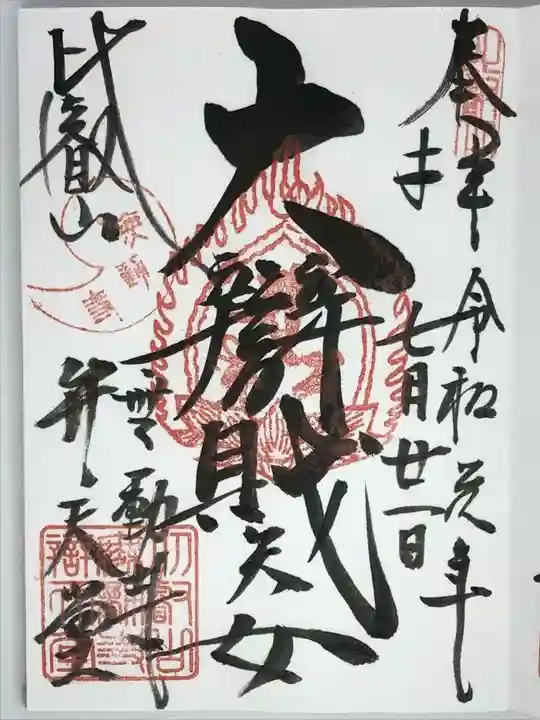 奉拝 令和元年
七月廿一日
大辯財天女
比叡山
無動寺
弁天堂